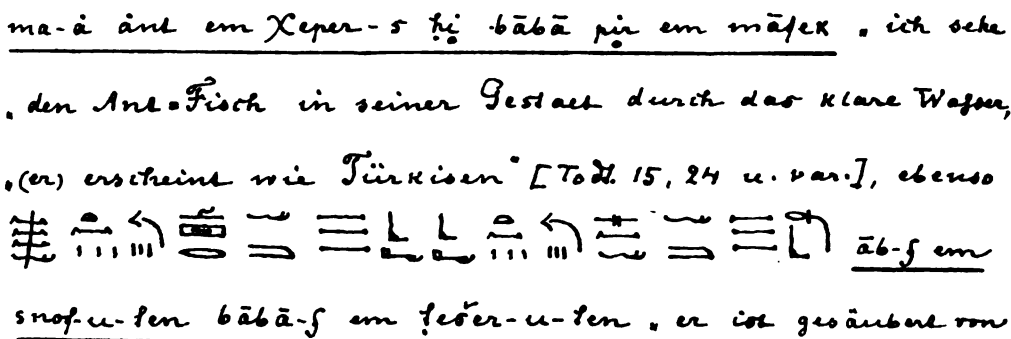 ma-à ànt em Xeper-s ḥi bābā pir em māfek „ ich sehe
„ den Ant-Fisch in seiner Gestalt durch das klare Wasser,
„ (er) erscheint wie Türkisen“ [Todt. 15, 24 u. var.], ebenso
āb-f em
snof-u-ten bābā-f em ṭešer-u-ten „ er ist gesäubert von